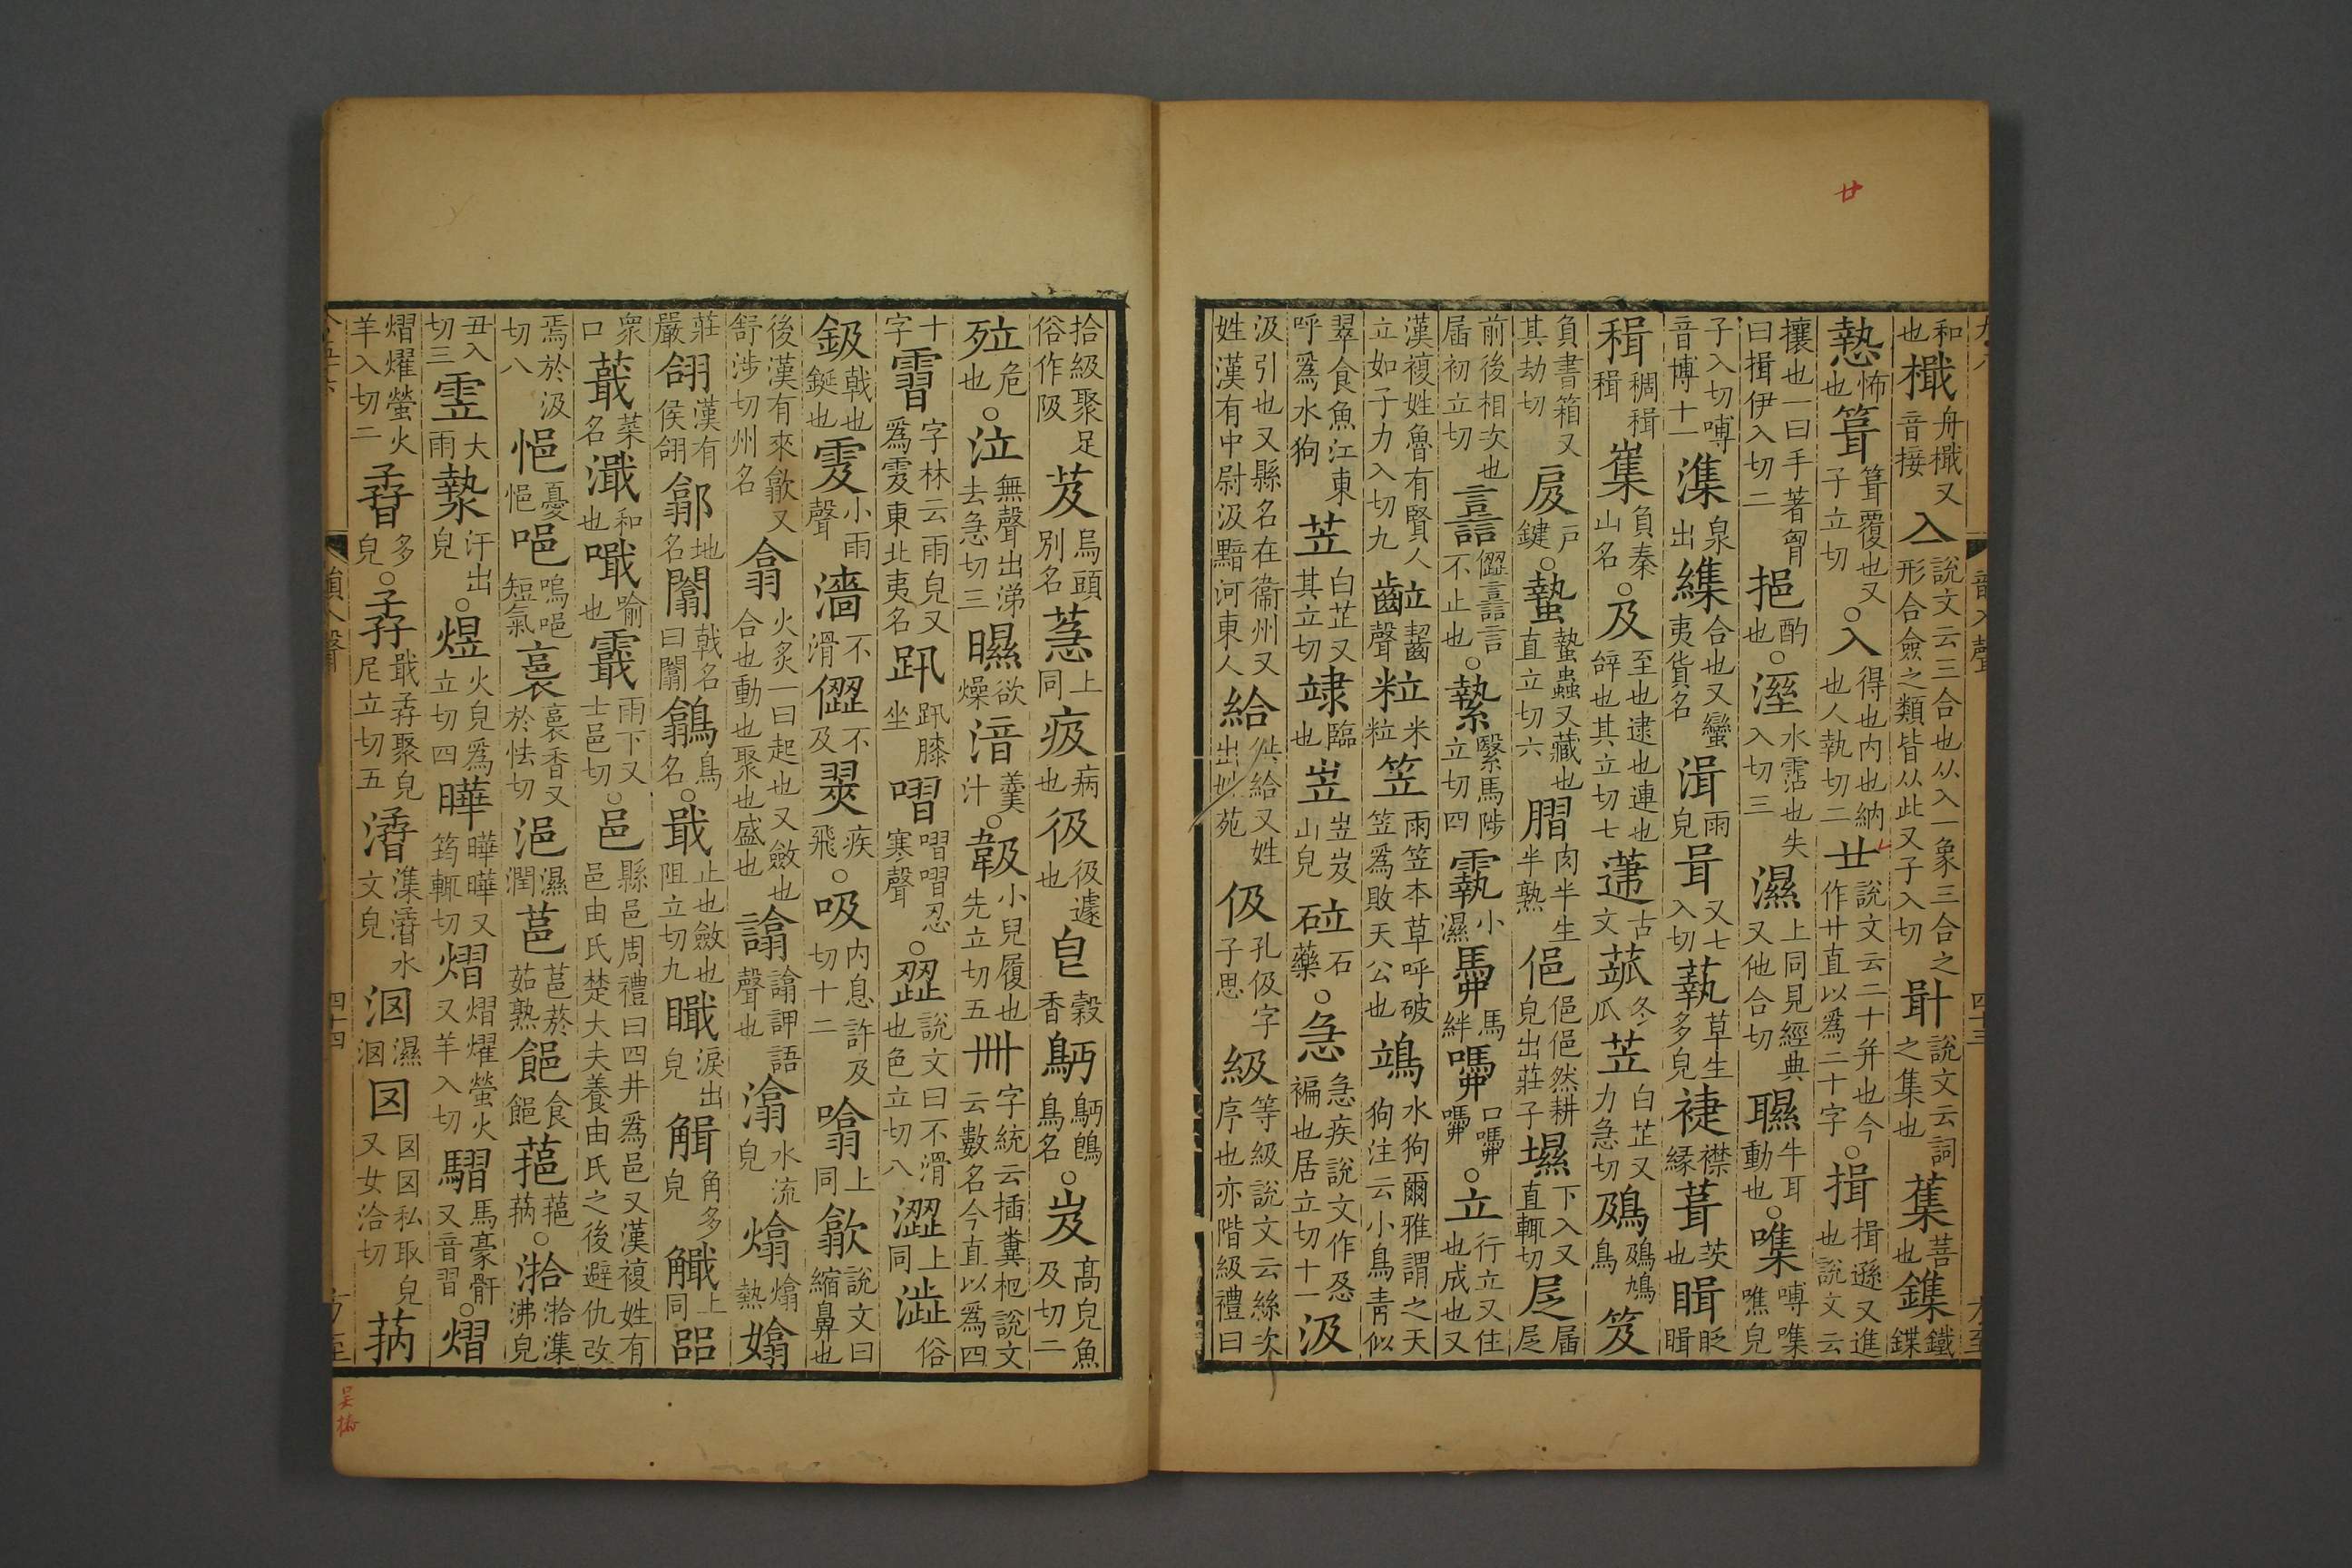 和也檝舟檝又音接亼說文云三合也从入一象三合之形合僉之類皆从此又子入切㗱說文云詞之集也䕆菩也鏶鐵鍱
慹怖也葺葺覆也又子立切○入得也內也納也人執切二廿說文云二十并也今作廿直以爲二十字○揖揖遜又進也說文云
攘也一曰手著胷曰揖伊入切二挹酌也○溼水霑也失入切三濕上同見經典又他合切㬤牛耳動也○噍嗼噍噍皃
子入切嗼音博十一潗泉出䌖合也又蠻夷貨名湒雨皃咠又七入切蓻草生多皃䙎襟緣葺茨也䁒眨䁒
稓稠稓嶯負秦山名○及至也逮也連也辝也其立切七蓮古文苽冬瓜苙白芷又力急切鵖鵖鴔鳥笈
負書箱又其劫切扱戶鍵○蟄蟄蟲又藏也直立切六䐲肉半生半熟俋俋俋然耕皃出莊子㙷下入又直輒切㞚届㞚
前後相次也届初立切譶䜚譶言不止也○縶繫馬陟立切四霵小濕馽馬絆𡄴口𡄴𡄴○立行立又住也成也又
漢複姓魯有賢人立如子力入切九齜齧聲粒米粒笠雨笠本草呼破笠爲敗天公也鴗水狗爾雅謂之天狗注云小鳥青似
翠食魚江東呼爲水狗苙白芷又其立切䇐臨也岦岦岌山皃砬石藥○急急疾說文作㤂褊也居立切十一汲
汲引也又縣名在衞州又姓漢有中尉汲黯河東人給供給又姓出姒苑伋孔伋字子思級等級說文云絲次序也亦階級禮曰
拾級聚足俗作阪芨烏頭別名蒠上同疲病也彶彶遽也皀穀香鴔鴔鵖鳥名○岌高皃魚及切二
㱞危也○泣無聲出涕去急切三㬤欲燥湆羹汁○靸小兒履也先立切五卌字統云插糞杷說文云數名今直以爲四
十字霫字林云雨皃又爲霫東北夷名趿趿膝坐嶍嶍嶍忍寒聲○歰說文曰不滑也色立切八澀上同澁俗
鈒戟也鋋也霎小雨聲濇不滑㒊不及翜疾飛○吸內息許及切十二噏上同歙說文曰縮鼻也
後漢有來歙又舒涉切州名翕火炙一曰起也又斂也合也動也聚也盛也譶譶訶語聲也潝水流皃熻熻熱嬆
莊嚴䎋漢有侯䎋鄎地名闟戟名曰闟鶲鳥名○戢止也斂也阻立切九䁙淚出皃䚄角多皃䚗上同㗊
衆口蕺菜名濈和也㗱喻也霵雨下又士邑切○邑縣邑周禮曰四井爲邑又漢複姓有邑由氏楚大夫養由氏之後避仇改
焉於汲切八悒憂悒唈嗚唈短氣裛裛香又於怯切浥濕潤菎菎菸茹熟䭂食䭂䓃䓃蒳○湁湁潗沸皃
丑入切三霔大雨漐汗出皃○熤火皃爲立切四曄曄曄又筠輒切熠熠燿螢火又羊入切騽馬豪骭又音習○熠
熠燿螢火羊入切二𣊡多皃○孨戢孨聚皃尼立切五湒潗湒水文皃㴔濕㴔囡囡囡私取皃又女洽切蒳